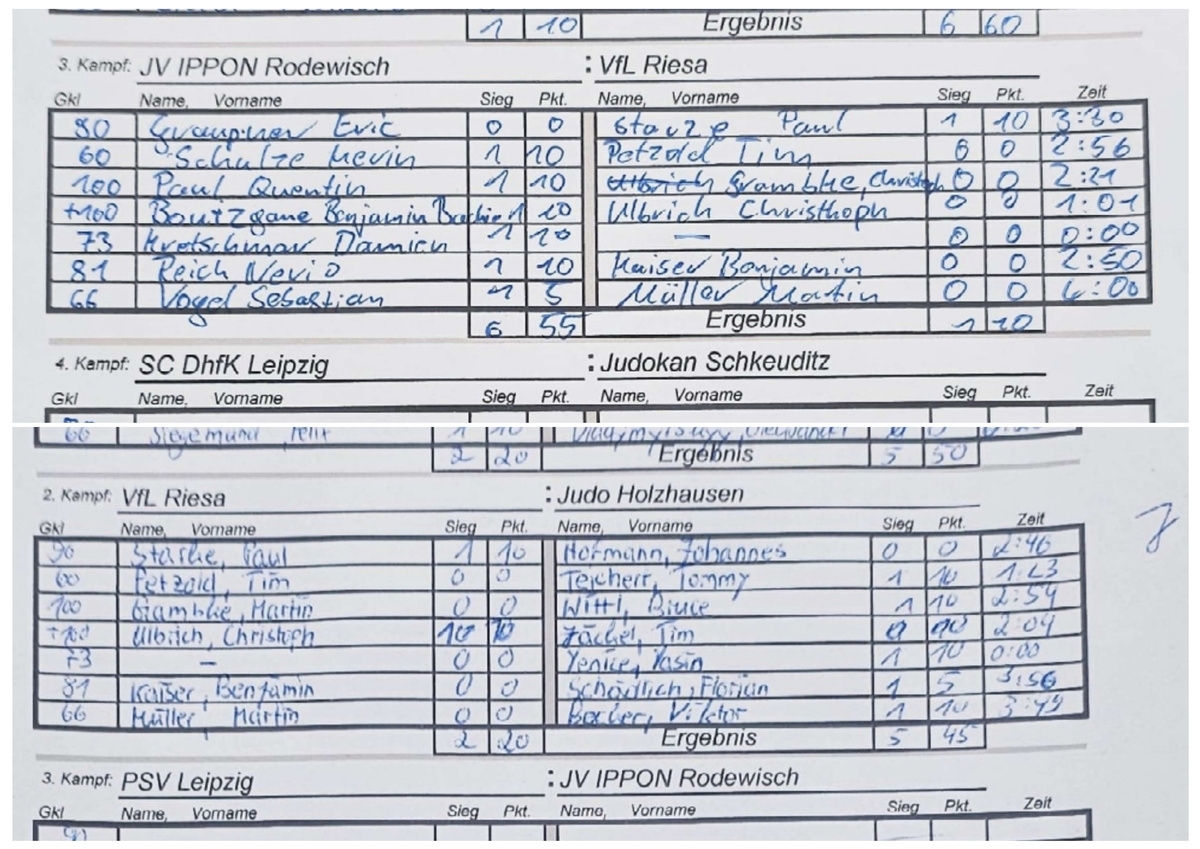 1 10 Ergebnis 6 60
3. Kampf: JV IPPON Rodewisch : VfL Riesa
Gkl Name, Vorname Sieg Pkt. Name, Vorname Sieg Pkt. Zeit
90 Eric 0 0 Paul 1 10 3:30
60 Schulze Kevin 1 10 Petzold Tim 0 0 2:56
100 Paul Quentin 1 10 Gramblke, Christoph 0 0 2:21
+100 Benjamin 1 10 Ulbrich Christhoph 0 0 1:01
73 Kretschmar Damien 1 10 — 0 0 0:00
81 Reich Nevio 1 10 Kaiser Benjamin 0 0 2:50
66 Vogel Sebastian 1 5 Müller Martin 0 0 4:00
6 55 Ergebnis 1 10
4. Kampf: SC DhfK Leipzig : Judokan Schkeuditz
Gkl Name, Vorname Sieg Pkt. Name, Vorname Sieg Pkt. Zeit
66 Siegemund, Felix 1 10
2 20 Ergebnis 5 50
2. Kampf: VfL Riesa : Judo Holzhausen
Gkl Name, Vorname Sieg Pkt. Name, Vorname Sieg Pkt. Zeit
90 Starke, Paul 1 10 Hofmann, Johannes 0 0 2:46
60 Petzold, Tim 0 0 Teichert, Tommy 1 10 1:23
100 Gramblke, Martin 0 0 Wittl, Bruce 1 10 2:54
+100 Ulbrich, Christoph 10 10 Jäckel, Tim 2:04
73 – 0 0 Yenice, Yasin 1 10 0:00
81 Kaiser, Benjamin 0 0 Schädlich, Florian 1 5 3:56
66 Müller, Martin 0 0 Becher, Viktor 1 10 3:49
2 20 Ergebnis 5 45
3. Kampf: PSV Leipzig : JV IPPON Rodewisch
Gkl Name, Vorname Sieg Pkt. Name, Vorname Sieg Pkt. Zeit
90